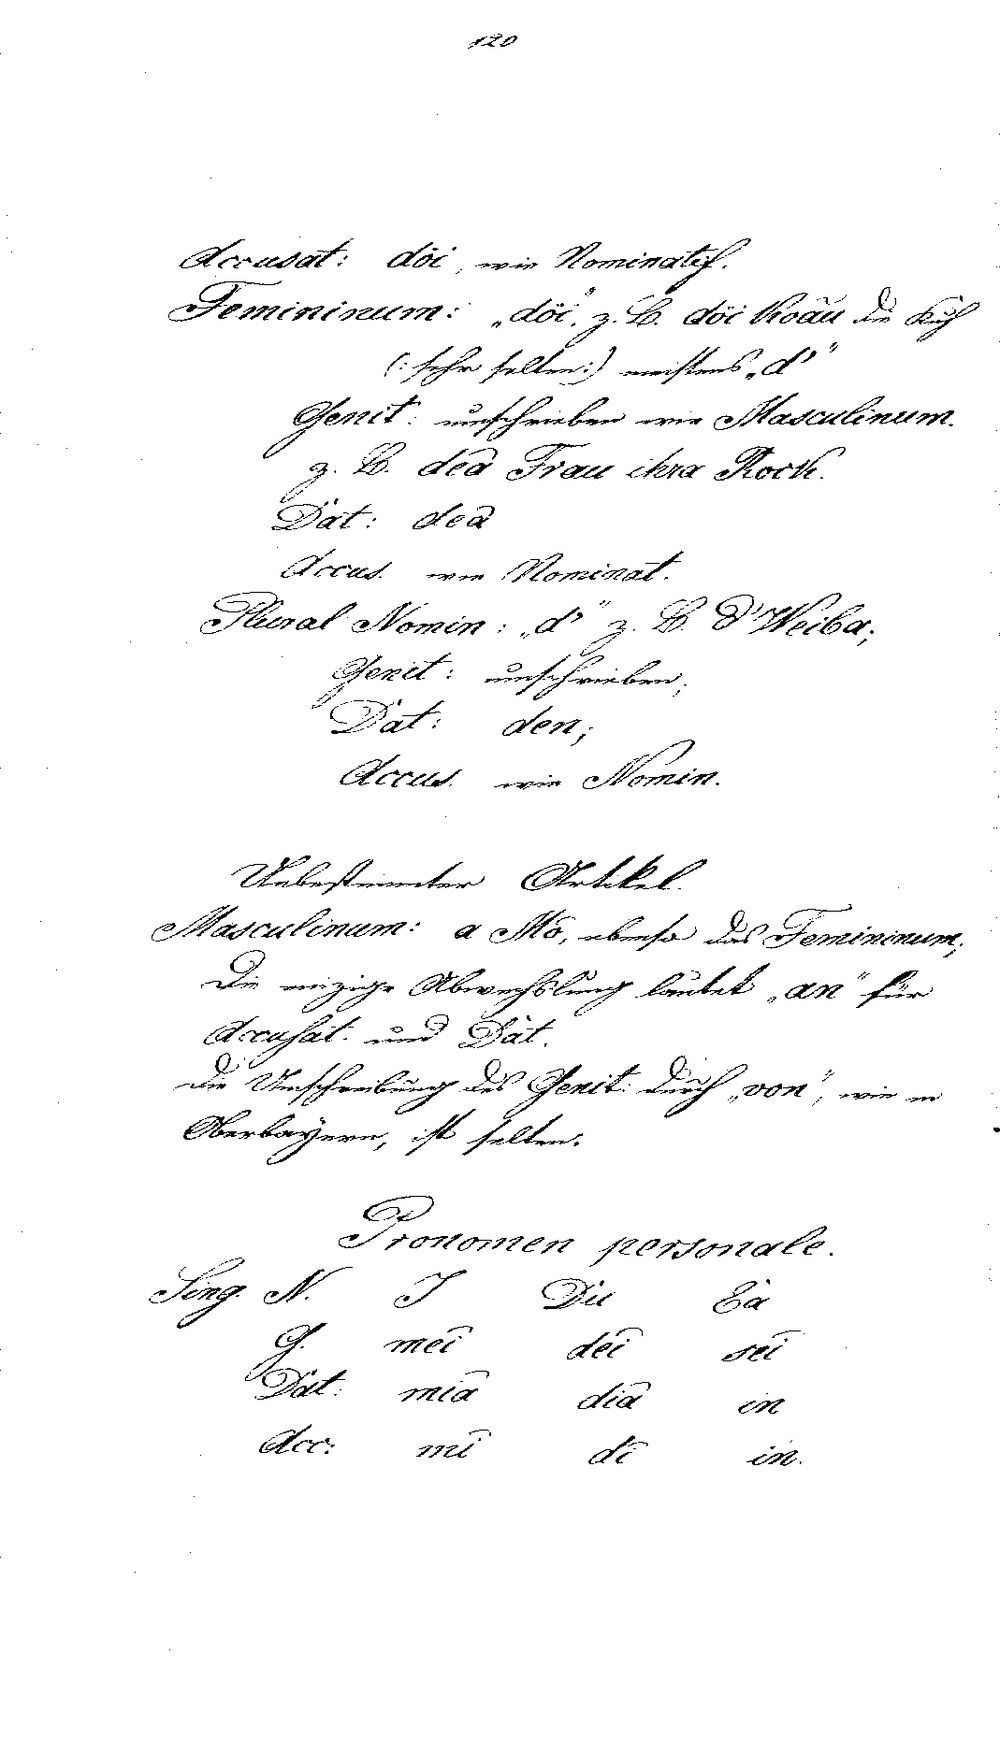 120
Accusat: döi, wie Nominatif.
Femininum: „döi", z. B. döi Koäu die Kuh
(: sehr selten:) meistens „d'"
Genit: umschrieben wie Masculinum.
z. B. deā Frau ihra Rock.
Dat: deā
Accus. wie Nominat.
Plural Nomin: „d'" z. B. D'Weiba;
Genit: umschrieben;
Dat: den;
Accus. wie Nomin.
Unbestimmter Artikel.
Masculinum: a Mō, ebenso das Femininum;
Die einzige Abwechslung lautet „an" für
Accusat. und Dat.
Die Umschreibung des Genit: durch „von", wie in
Oberbayern, ist selten.
Pronomen personale.
Sing. N. I Du Ea
G. mei dei sei
Dat: miā diā in
Acc: mī dī in.